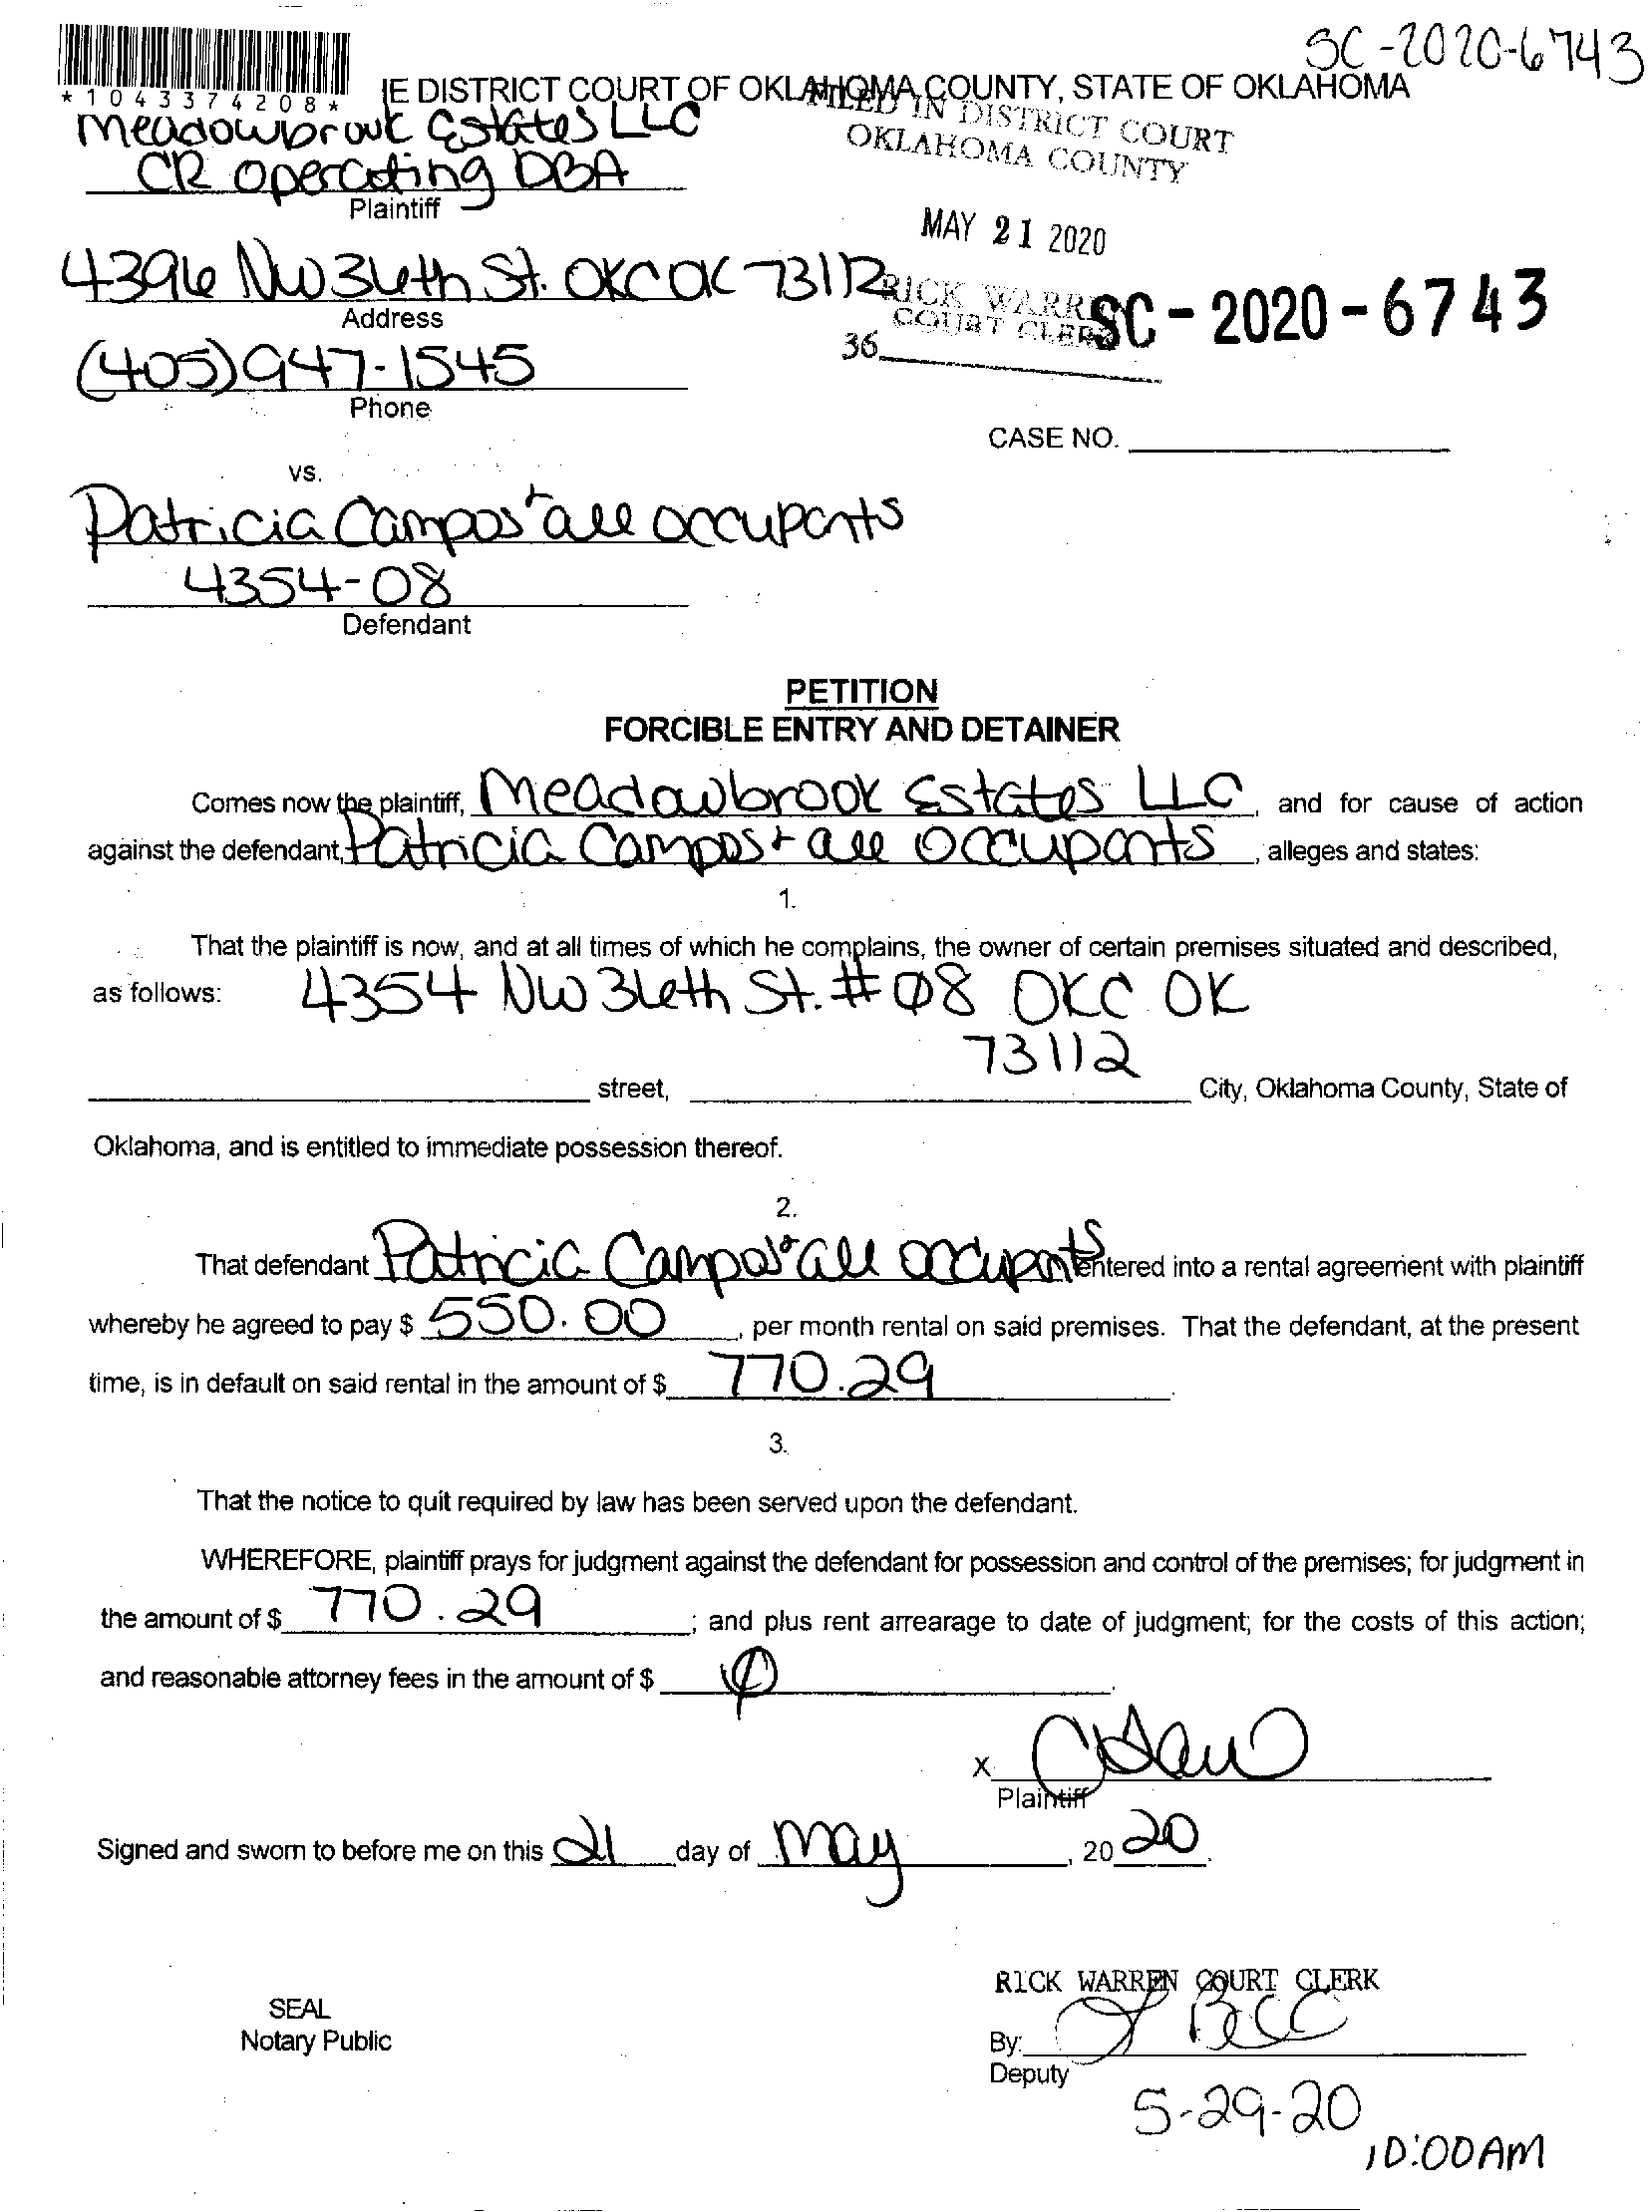 SC-2020-6743
*1043374208*
E DISTRICT COURT OF OKLAHOMA COUNTY, STATE OF OKLAHOMA
Meadowbrook Estates LLC
FILED IN DISTRICT COURT
OKLAHOMA COUNTY
CR Operating DBA
Plaintiff
MAY 21 2020
4396 NW 36th St. OKC OK 73112
Address
RICK WARREN
COURT CLERK
SC-2020-6743
36
(405) 947-1545
Phone
CASE NO.
vs.
Patricia Campos + all occupants
4354-08
Defendant
PETITION
FORCIBLE ENTRY AND DETAINER
Comes now the plaintiff, Meadowbrook Estates LLC, and for cause of action
against the defendant, Patricia Campos + all occupants, alleges and states:
1.
That the plaintiff is now, and at all times of which he complains, the owner of certain premises situated and described,
as follows: 4354 NW 36th St. #08 OKC OK
73112
street, City, Oklahoma County, State of
Oklahoma, and is entitled to immediate possession thereof.
2.
That defendant Patricia Campos + all occupants entered into a rental agreement with plaintiff
whereby he agreed to pay $ 550.00, per month rental on said premises. That the defendant, at the present
time, is in default on said rental in the amount of $ 770.29.
3.
That the notice to quit required by law has been served upon the defendant.
WHEREFORE, plaintiff prays for judgment against the defendant for possession and control of the premises; for judgment in
the amount of $ 770.29; and plus rent arrearage to date of judgment; for the costs of this action;
and reasonable attorney fees in the amount of $ Ø.
X
Plaintiff
Signed and sworn to before me on this 21 day of May, 2020.
RICK WARREN COURT CLERK
SEAL
Notary Public
By:
Deputy
5-29-20
10:00AM